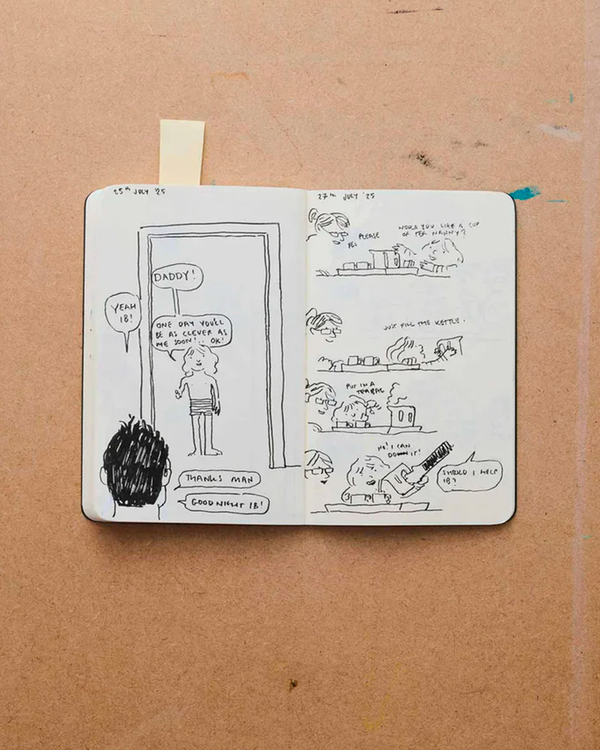 25TH JULY '25
DADDY!
YEAH
IB!
ONE DAY YOU'LL
BE AS CLEVER AS
ME SOON! OK!
THANKS MAN
GOODNIGHT IB!
27TH JULY '25
WOULD YOU LIKE A CUP
OF TEA NANNY?
PLEASE
IB!
JUST FILL THE KETTLE.
PUT IN A
TEABAG
NO! I CAN
DO IT!
SHOULD I HELP
IB?